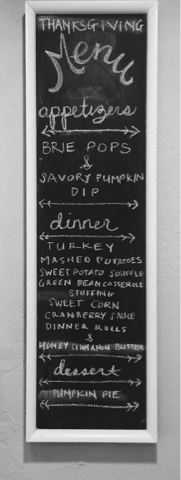 THANKSGIVING
Menu
appetizers
BRIE POPS
&
SAVORY PUMPKIN
DIP
dinner
TURKEY
MASHED POTATOES
SWEET POTATO SOUFFLE
GREEN BEAN CASSEROLE
STUFFING
SWEET CORN
CRANBERRY SAUCE
DINNER ROLLS
&
HONEY CINNAMON BUTTER
dessert
PUMPKIN PIE